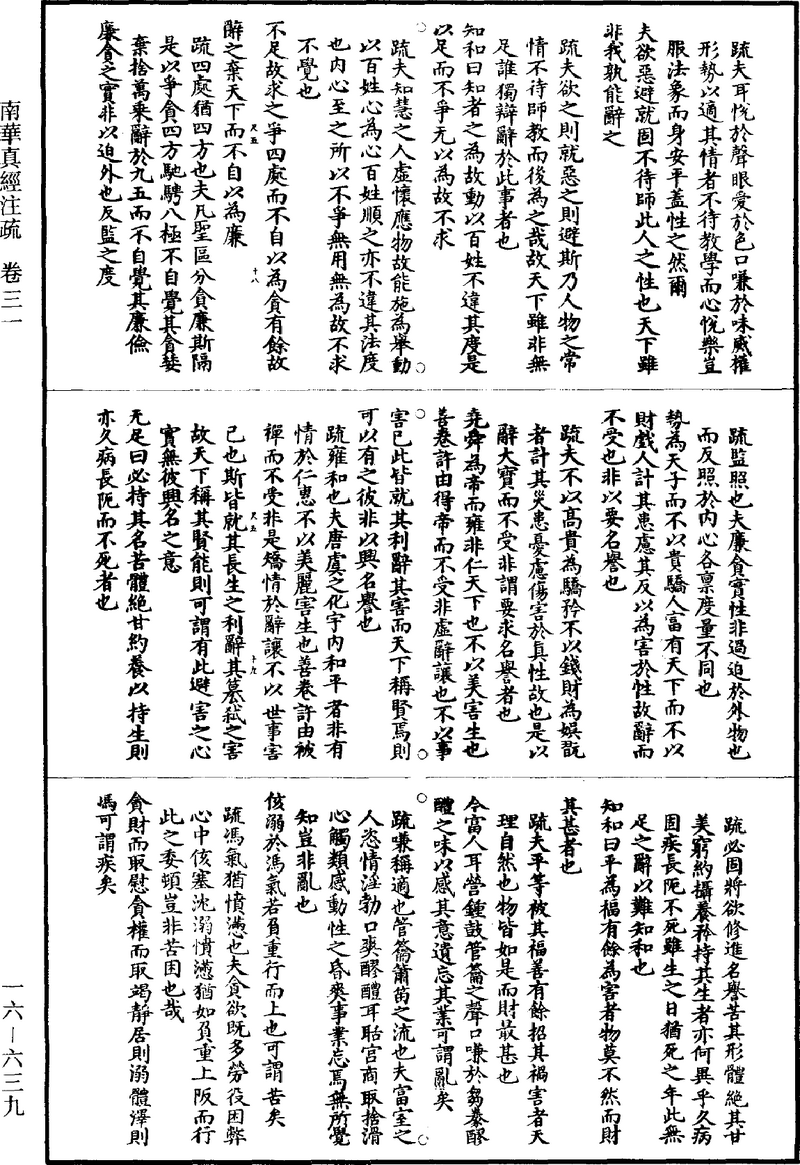 疏夫耳悅於聲眼愛於色口嗛於味威權
形勢以適其情者不待教學而心悅樂豈
服法象而身安乎蓋性之然爾
夫欲惡避就固不待師此人之性也天下雖
非我孰能辭之
疏夫欲之則就惡之則避斯乃人物之常
情不待師教而後為之哉故天下雖非無
足誰獨辯辭於此事者也
知和曰知者之為故動以百姓不違其度是
以足而不爭无以為故不求
疏夫知慧之人虛懷應物故能施為舉動
以百姓心為心百姓順之亦不違其法度
也內心至之所以不爭無用無為故不求
不覺也
不足故求之爭四處而不自以為貪有餘故
辭之棄天下而不自以為廉
疏四處猶四方也夫凡聖區分貪廉斯隔
是以爭貪四方馳騁八極不自覺其貪婪
棄捨萬乘辭於九五而不自覺其廉儉
廉貪之實非以迫外也反監之度
疏監照也夫廉貪實性非過迫於外物也
而反照於內心各稟度量不同也
勢為天子而不以貴驕人富有天下而不以
財戲人計其患慮其反以為害於性故辭而
不受也非以要名譽也
疏夫不以高貴為驕矜不以錢財為娛翫
者計其災患憂慮傷害於真性故也是以
辭大寶而不受非謂要求名譽者也
堯舜為帝而雍非仁天下也不以美害生也
善卷許由得帝而不受非虛辭讓也不以事
害已此皆就其利辭其害而天下稱賢焉則
可以有之彼非以興名譽也
疏雍和也夫唐虞之化宇內和平者非有
情於仁惠不以美麗害生也善卷許由被
禪而不受非是矯情於辭讓不以世事害
己也斯皆就其長生之利辭其篡弒之害
故天下稱其賢能則可謂有此避害之心
實無彼興名之意
无足曰必持其名苦體絕甘約養以持生則
亦久病長阨而不死者也
疏必固將欲修進名譽苦其形體絕其甘
美窮約攝養矜持其生者亦何異乎久病
固疾長阨不死雖生之日猶死之年此無
足之辭以難知和也
知和曰平為福有餘為害者物莫不然而財
其甚者也
疏夫平等被其福善有餘招其禍害者天
理自然也物皆如是而財最甚也
今富人耳營鍾鼓管籥之聲口嗛於芻豢醪
醴之味以感其意遺忘其業可謂亂矣
疏嗛稱適也管籥簫笛之流也夫富室之
人恣情淫勃口爽醪醴耳聒宮商取捨滑
心觸類感動性之昏爽事業忘焉無所覺
知豈非亂也
侅溺於馮氣若負重行而上也可謂苦矣
疏馮氣猶憤懣也夫貪欲既多勞役困弊
心中侅塞沈溺憤懣猶如負重上阪而行
此之委頓豈非苦困也哉
貪財而取慰貪權而取竭靜居則溺體澤則
馮可謂疾矣
尺五
十八
尺五
十九
南華真經注疏 卷三一
一六—六三九